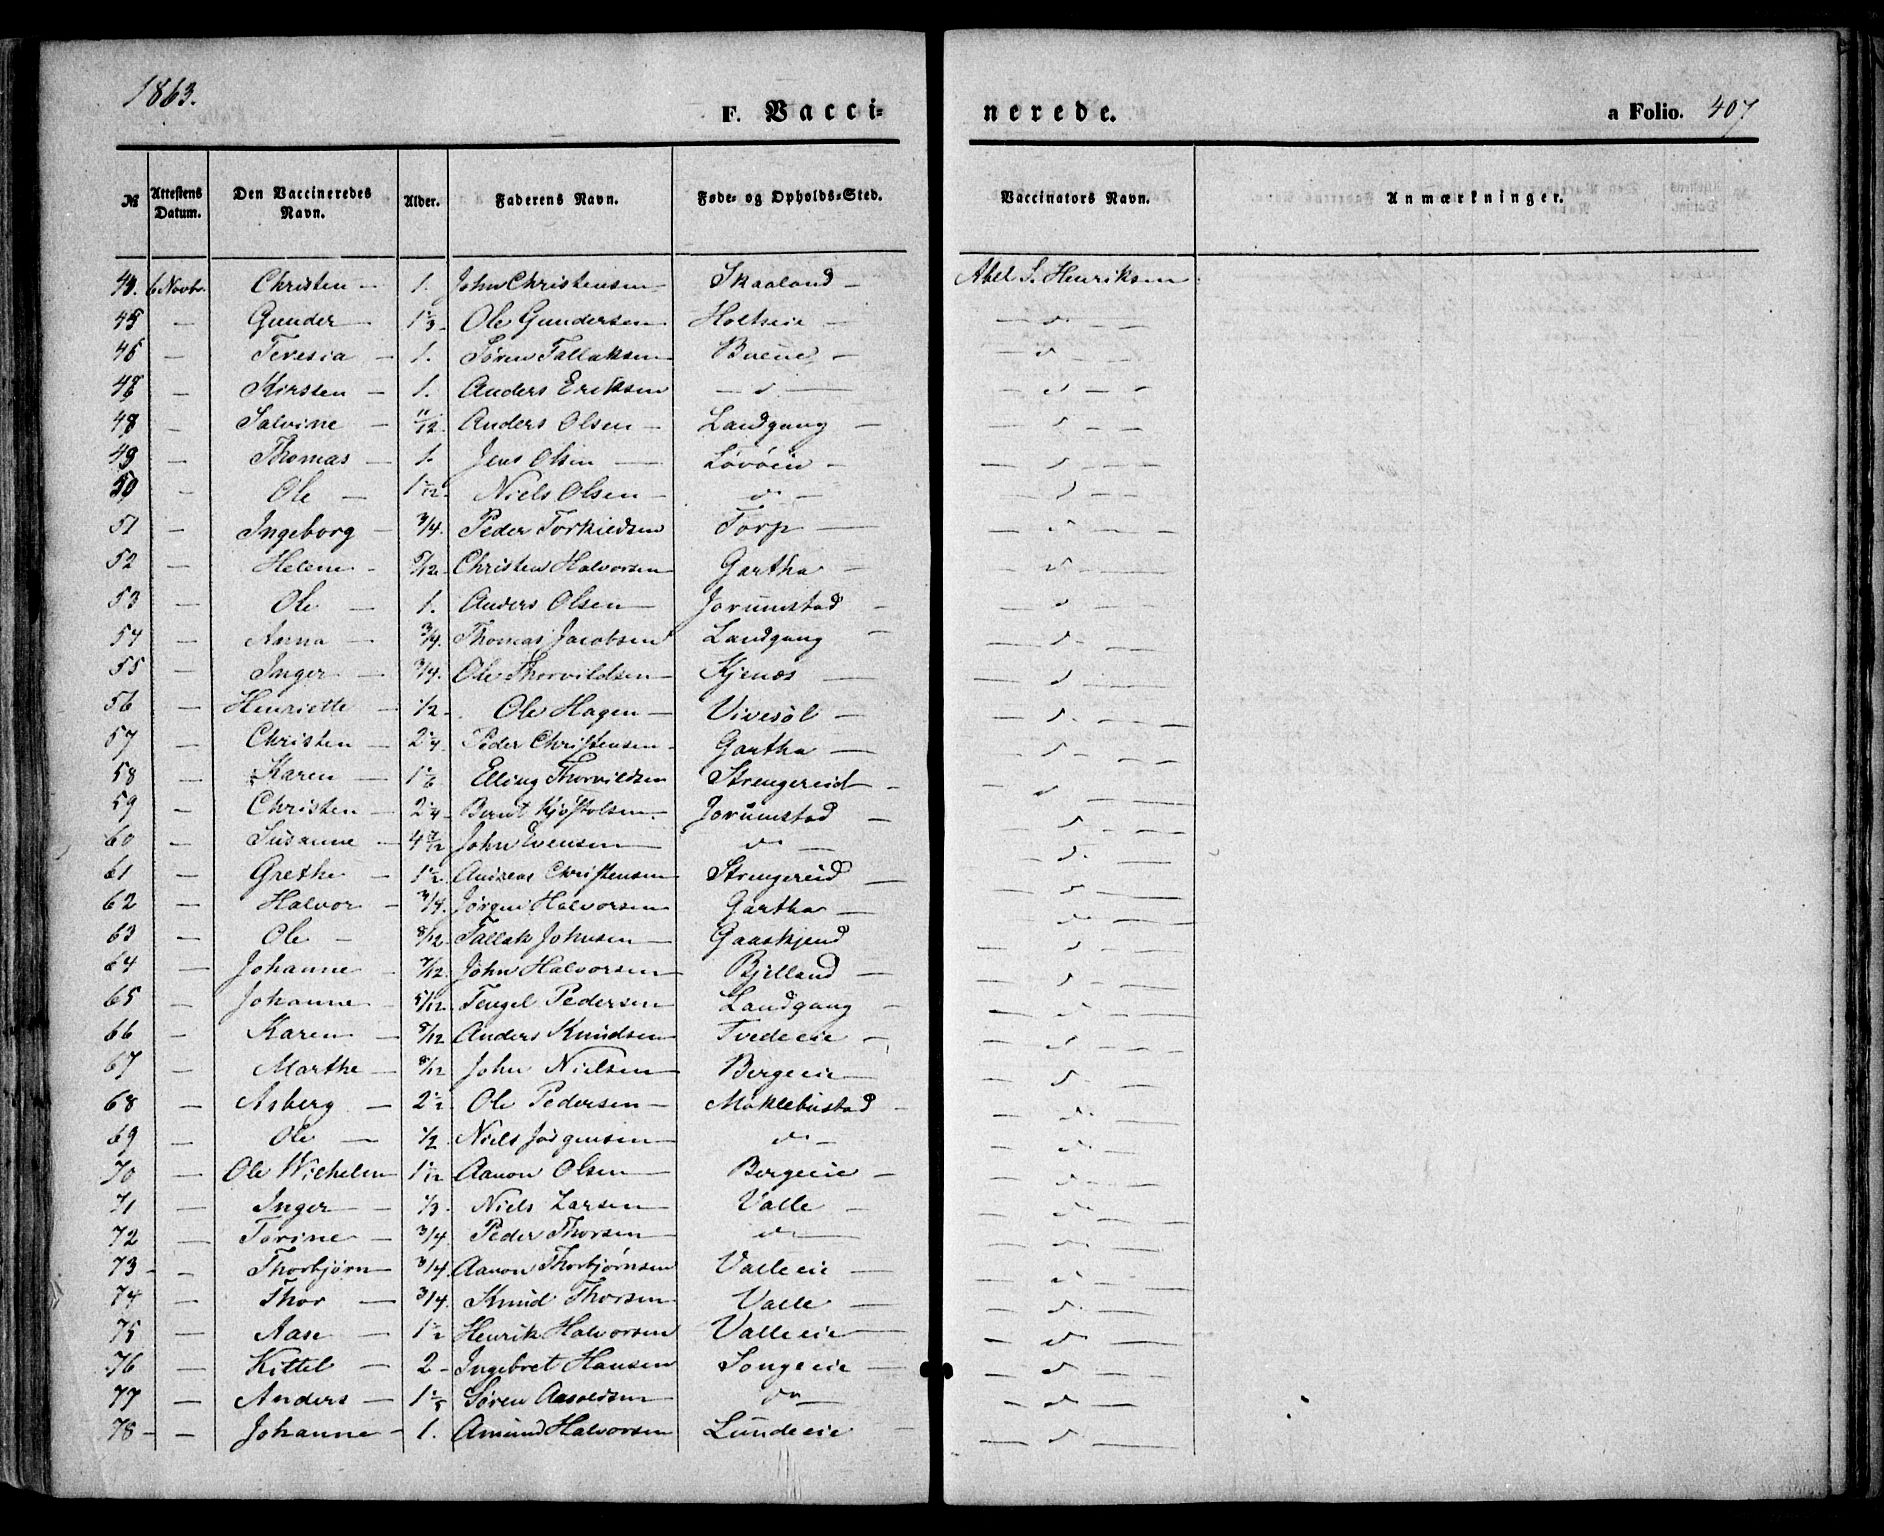 1863.
F. Vacci- nerede. a Folio. 407
№ Attestens Datum. Den Vaccineredes Navn. Alder. Faderens Navn. Føde- og Opholds-Sted. Vaccinators Navn. Anmærkninger.
6 Novbr. Christen - 1. John Christensen - Skaaland - Abel S. Henriksen
45 - Gunder - 1 1/3 - Ole Gundersen Holteeie - - d - -
46 - Teresia - 1. Søren Tallaksen Buene - - d - -
- Kirsten - 1. Anders Eriksen - d - - d - -
48 - Salvine - 11/12 Anders Olsen - Landgang - - d - -
49 - Thomas - 1. Jens Olsen - - d - -
50 - Ole - 1 1/12 - Niels Olsen - d - - d - -
51 - Ingeborg - 3/4. Peder Torkildsen Torp - - d - -
52 - Helene - 5/12 Christen Halvorsen Gartha - - d - -
53 - Ole - 1. Anders Olsen - Jorumstad - - d - -
54 - Anna - 3/4. Thomas Jacobsen Landgang - - d -
55 - Inger - 3/4. Ole Thorvildsen - Kjenes - - d -
56 - Henriette - 1/2 - Ole Hagen - Vivesøl - - d. -
57 - Christen - 2 1/4 - Peder Christensen - Gartha - - d - -
58 - Karen - 1 1/6 Elling Thorvildsen Strengereid - - d -
59 - Christen - 2 1/4 - Berndt Kjøstolsen. Jorumstad - - d - -
60 - Susanne - 4 7/12 John Evensen - d - - d. -
61 - Grethe - 1 1/2. Andreas Christensen Strengereid - - d -
62 - Halvor - 3/4. Jørgen Halvorsen Gartha - - d -
63 - Ole - 8/12 - Tallak Johnsen - Gaaskjend - d -
64 - Johanne - 7/12. John Halvorsen - Bjelland - - d -
65 - Johanne - 5/12. Tengel Pedersen Landgang - - d -
66 - Karen - 8/12 Anders Knudsen Tvedeeie - - d -
67 - Marthe - 8/12 John Nielsen - Bergeeie - - d -
68 - Asberg - 2 1/2. Ole Pedersen - Moklebustad - - d. -
69 - Ole - 1/2 Niels Jørgensen - d - - d -
70 - Ole Wilhelm 1 1/12 Aanon Olsen - Bergeeie - - d -
71 - Inger - 1/3. Niels Larsen - Valle - - d -
72 - Torine - 3/4 Peder Thorsen - d - - d. -
73 - - Thorbjørn - 3/4. Aanon Thorbjørnsen Valleeie - - d -
74 - Thor - 3/4. Knud Thorsen - Valle - - d. -
75 - Aase - 1 1/2 Henrik Halvorsen Valleeie - - d -
76 - Kittel - 2 - Ingebret Hansen Songeeie - - d -
77 - Anders - 1 1/5 Søren Aasoldsen do - - d -
78 - - Johanne - 1. Amund Halvorsen Lundeeie - - d -